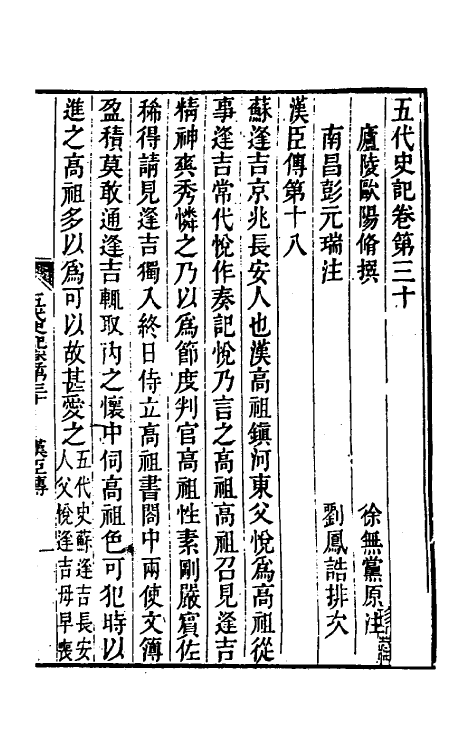 五代史記卷第三十
廬陵歐陽脩撰 徐無黨原注
南昌彭元瑞注 劉鳳誥排次
漢臣傳第十八
蘇逢吉京兆長安人也漢高祖鎮河東父悅爲高祖從
事逢吉常代悅作奏記悅乃言之高祖高祖召見逢吉
精神爽秀憐之乃以爲節度判官高祖性素剛嚴賓佐
稀得請見逢吉獨入終日侍立高祖書閣中兩使文簿
盈積莫敢通逢吉輒取內之懷中伺高祖色可犯時以
進之高祖多以爲可以故甚愛之
五代史蘇逢吉長安
人父悅逢吉母早喪
五代史記卷第三十 漢臣傳 一